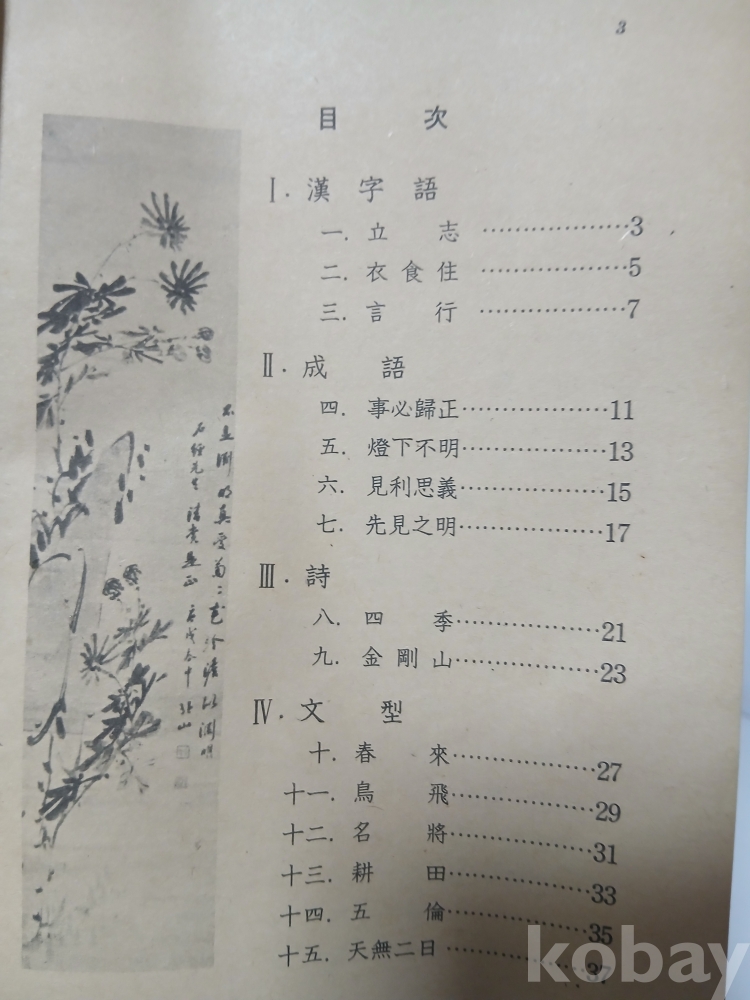 3
目 次
Ⅰ. 漢字語
一. 立 志 ………………3
二. 衣食住 ………………5
三. 言 行 ………………7
Ⅱ. 成 語
四. 事必歸正………………11
五. 燈下不明………………13
六. 見利思義………………15
七. 先見之明………………17
Ⅲ. 詩
八. 四 季………………21
九. 金剛山………………23
Ⅳ. 文 型
十. 春 來………………27
十一. 鳥 飛………………29
十二. 名 將………………31
十三. 耕 田………………33
十四. 五 倫………………35
十五. 天無二日………………37
kobay